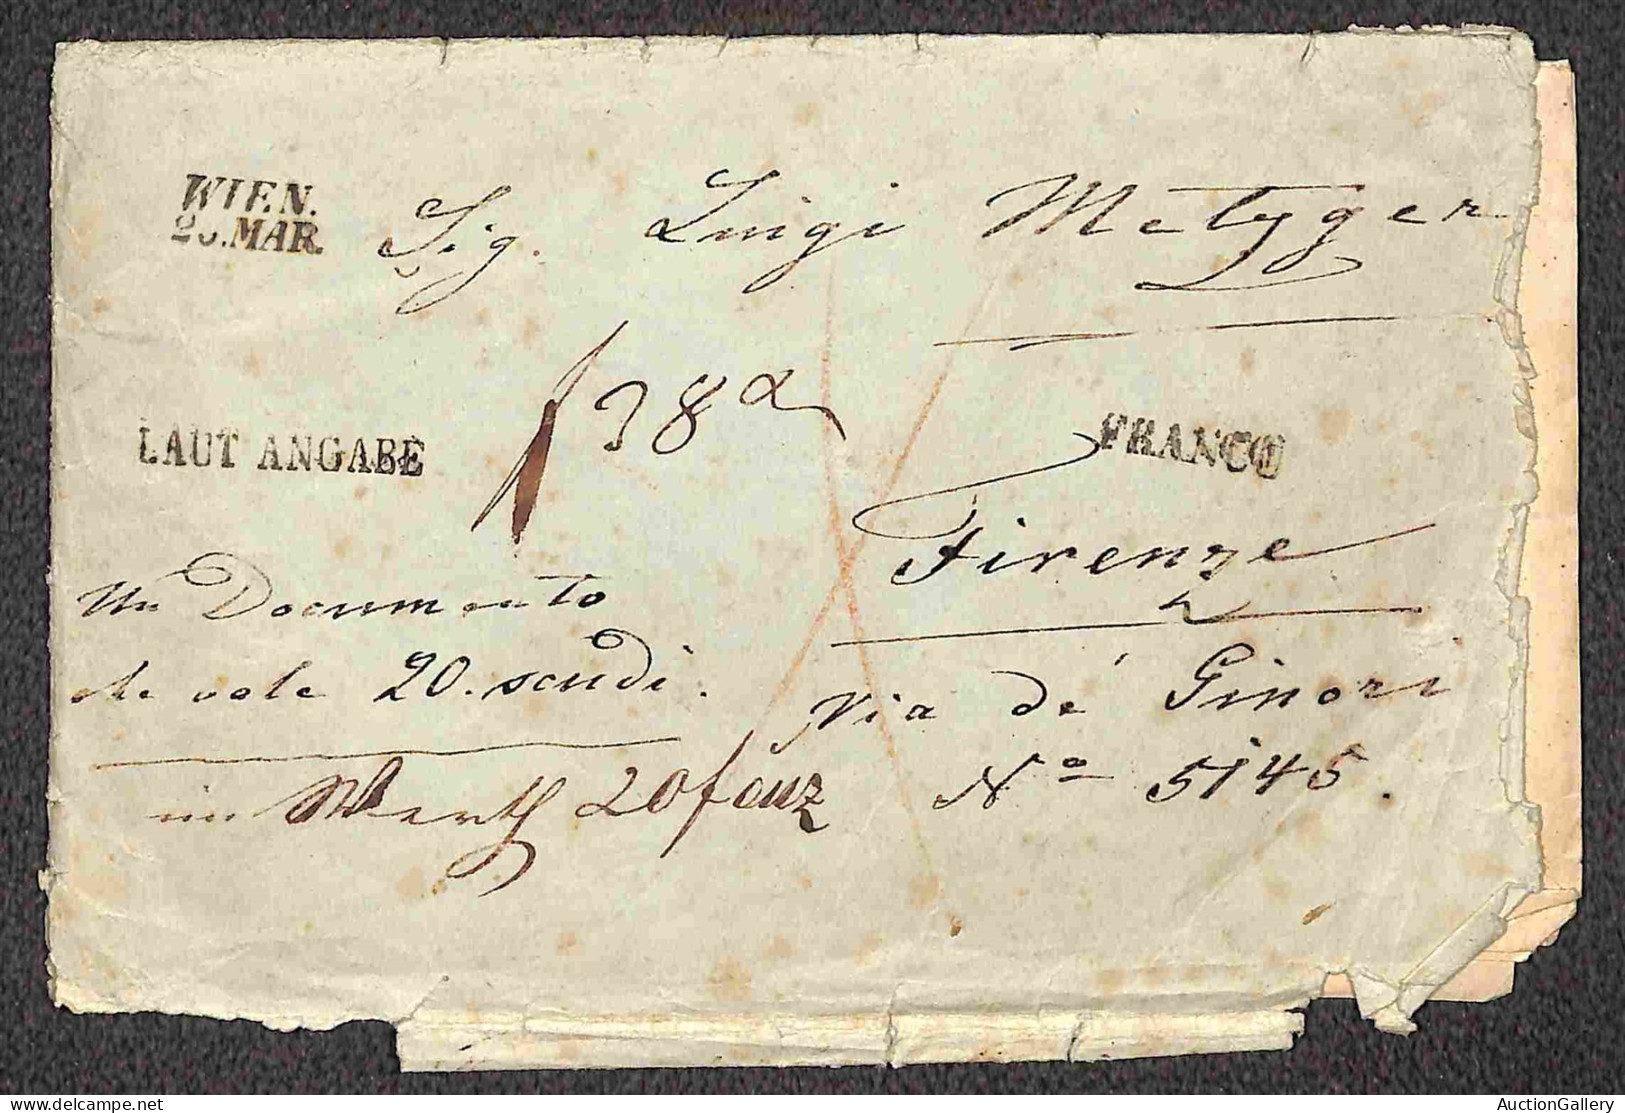 WIEN.
MAR.
Sig. Luigi Metzger
38
LAUT ANGABE
FRANCO
Firenze
Un Documento
che vale 20. scudi.
Via dé Ginori
Nº 5145.
im Werth 20f
AuctionGallery